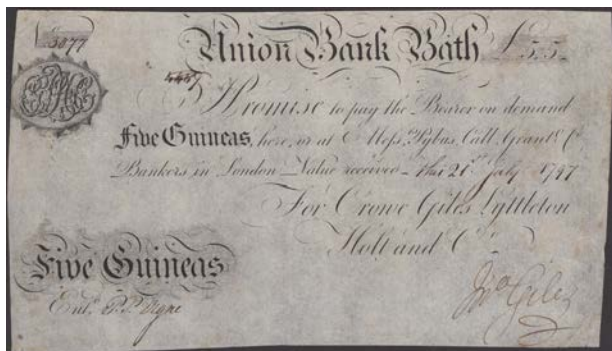 5877 Union Bank Bath £5.5.
Promise to pay the Bearer on demand
Five Guineas, here, or at Mess.rs Pybus, Call, Grant & C.o
Bankers in London Value received this 21st July 1797
For Crowe Giles Lyttleton
Holt and C.o
Five Guineas
Ent.d
Giles